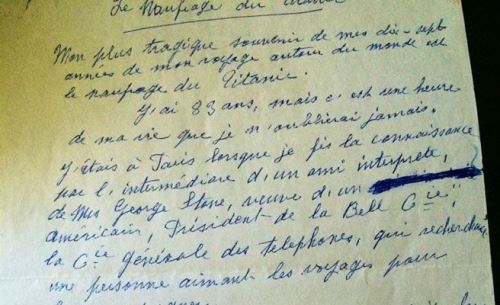 Le Naufrage du Titanic
Mon plus tragique souvenir de mes dix-sept
années de mon voyage autour du monde est
le naufrage du Titanic.
J'ai 83 ans, mais c'est une heure
de ma vie que je n'oublierai jamais.
J'étais à Paris lorsque je fis la connaissance
par l'intermédiare d'un ami interprète,
de Mrs George Stone, veuve d'un
américain, Président de la Bell Cie;
la Cie générale des telephones, qui recherchait
une personne aimant les voyages pour